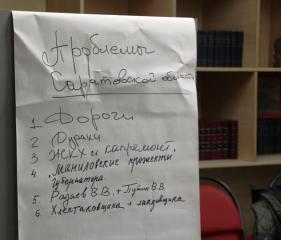 Проблемы
Саратовской области
1 Дороги
2 Дураки
3 ЖКХ и капремонт,
4 "Маниловские прожекты
губернатора
5. Радаев В.В. + Путин В.В.
6. Хлестаковщина + лакировщина